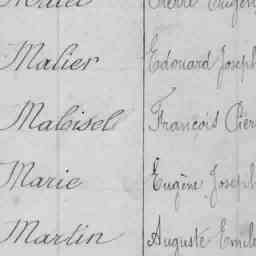 Malier Edouard Joseph
Maloisel François Pier
Marie Eugène Joseph
Martin Auguste Emile